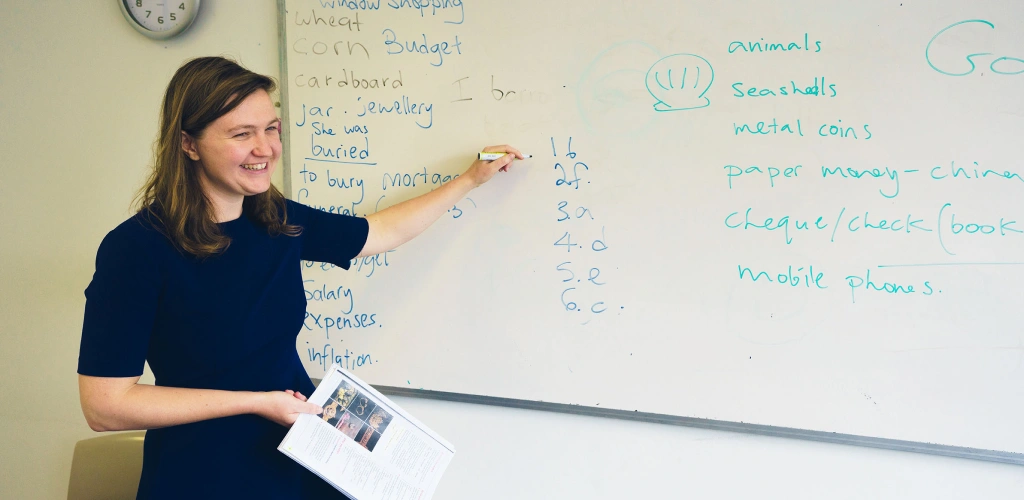 window shopping
wheat
corn Budget
cardboard
jar. jewellery
She was
buried
to bury
Salary
expenses.
inflation.
1 b
2f.
3.a
4. d
5. e
6. c.
animals
seashells
metal coins
paper money - china
cheque/check (book
mobile phones.
8 7 6 5 4